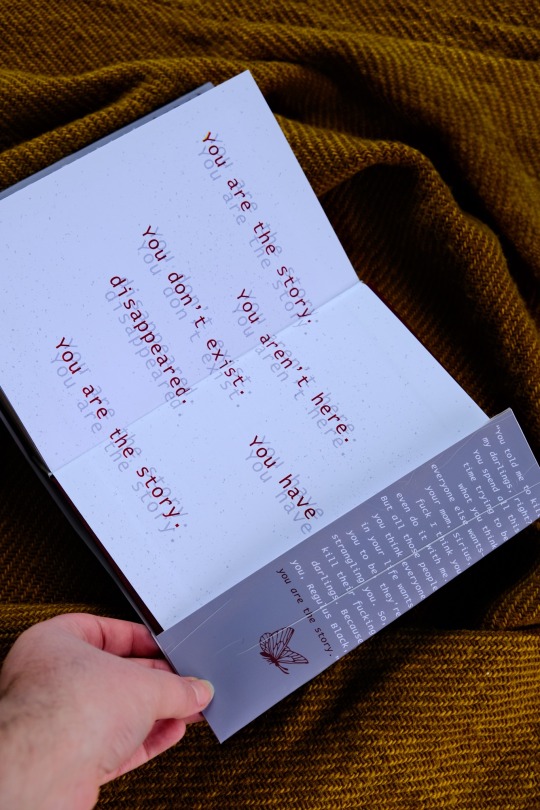 You are the story.
You aren't here.
You don't exist.
You have
disappeared.
You are the story.
"You told me to
my darlings,
You spend all this
time trying to be
what you think
everyone else wants
your mom, Sirius,
fuck I think you
even do it with me.
But all those people
you think everyone
in your life wants
you to be,
strangling you. So,
kill their fucking
darlings. Because
you, Regulus Black,
you are the story.